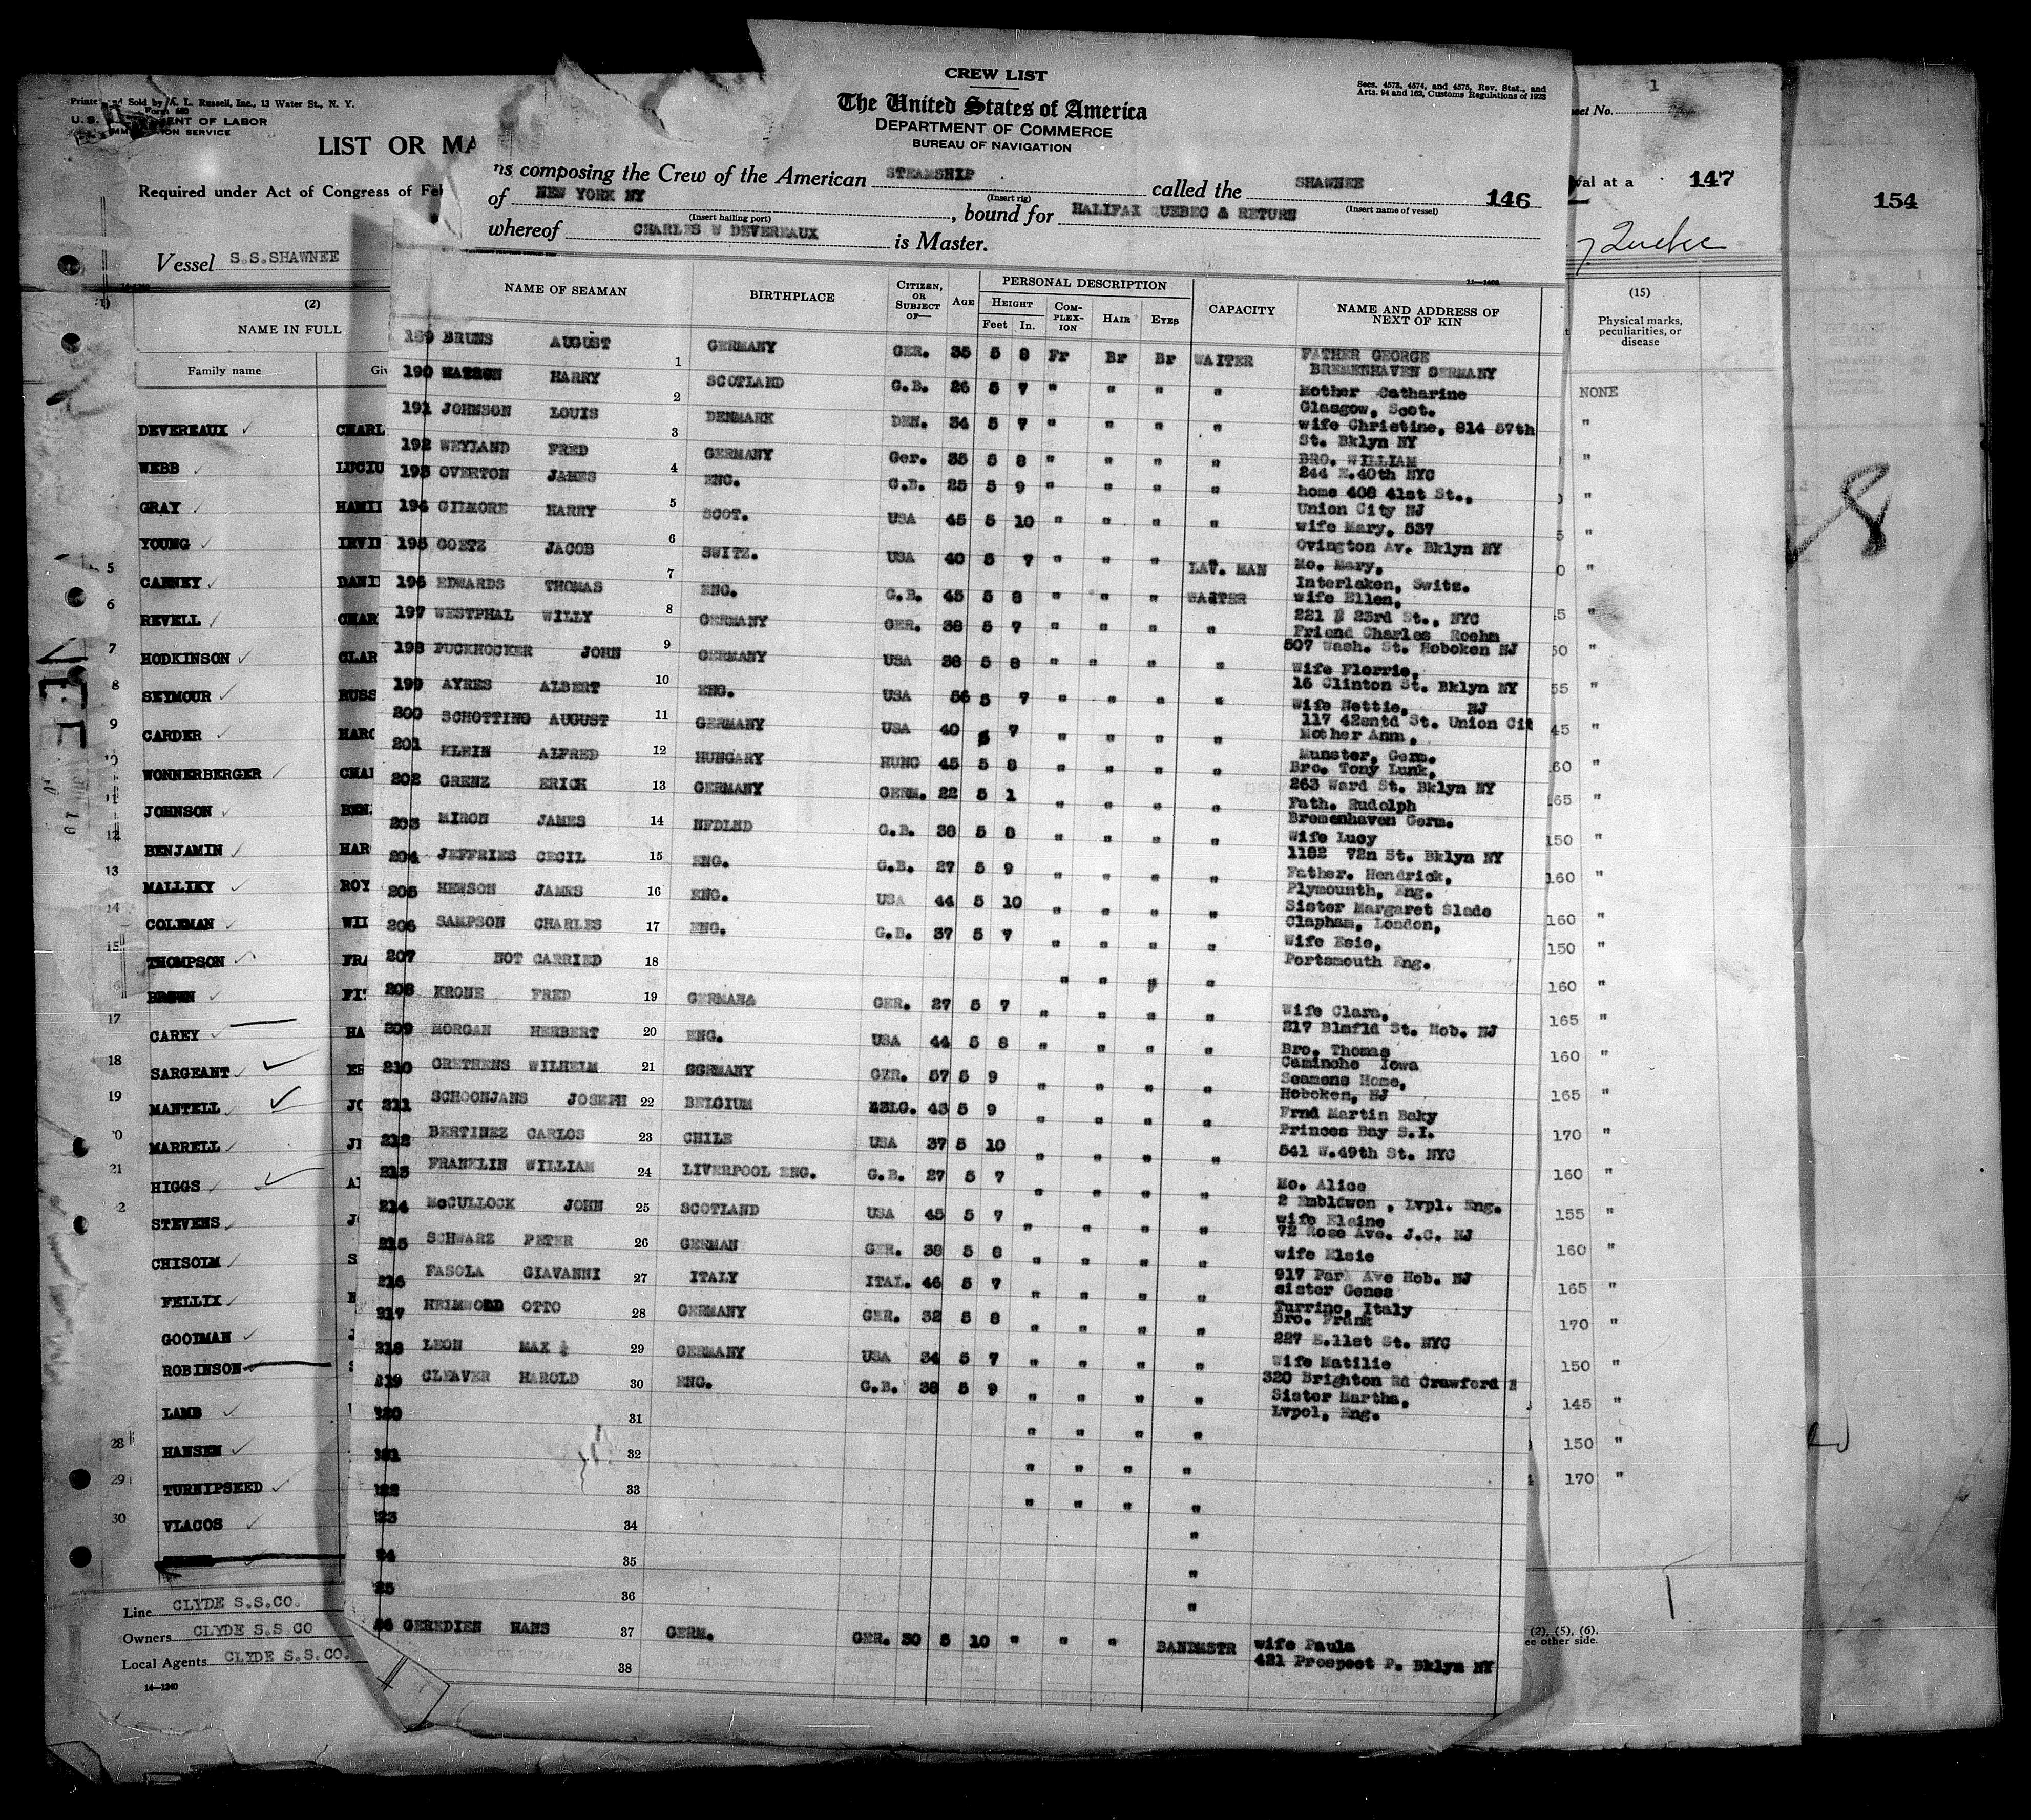 CREW LIST
The United States of America
DEPARTMENT OF COMMERCE
BUREAU OF NAVIGATION
Secs. 4573, 4574, and 4575, Rev. Stat., and
Arts. 94 and 162, Customs Regulations of 1923
ns composing the Crew of the American STEAMSHIP called the SHAWNEE 146
(Insert rig) (Insert name of vessel)
of NEW YORK NY, bound for HALIFAX QUEBEC & RETURN
(Insert hailing port)
whereof CHARLES W DEVEREAUX is Master.
11—1403
NAME OF SEAMAN BIRTHPLACE CITIZEN, OR SUBJECT OF— AGE PERSONAL DESCRIPTION CAPACITY NAME AND ADDRESS OF NEXT OF KIN
HEIGHT COMPLEXION HAIR EYES
Feet In.
189 BRUNS AUGUST 1 GERMANY GER. 35 5 8 Fr Br Br WAITER FATHER GEORGE
BREMENHAVEN GERMANY
190 WATSON HARRY 2 SCOTLAND G.B. 26 5 7 " " " " Mother Catharine
Glasgow, Scot.
191 JOHNSON LOUIS 3 DENMARK DEN. 34 5 7 " " " " wife Christine, 814 57th
St. Bklyn NY
192 WEYLAND FRED 4 GERMANY Ger. 35 5 8 " " " " BRO. WILLIAM
244 E.40th NYC
193 OVERTON JAMES 5 ENG. G.B. 25 5 9 " " " " home 408 41st St.,
Union City NJ
194 GILMORE HARRY 6 SCOT. USA 45 5 10 " " " " wife Mary, 537
Ovington Av. Bklyn NY
195 GOETZ JACOB 7 SWITZ. USA 40 5 7 " " " LAV. MAN Mo. Mary,
Interlaken, Switz.
196 EDWARDS THOMAS 8 ENG. G.B. 45 5 8 " " " WAITER wife Ellen,
221 E 23rd St., NYC
197 WESTPHAL WILLY 9 GERMANY GER. 38 5 7 " " " " Friend Charles Roehm
507 Wash. St. Hoboken NJ
198 PUCKHOCKER JOHN 10 GERMANY USA 38 5 8 " " " " Wife Florrie,
16 Clinton St. Bklyn NY
199 AYRES ALBERT 11 ENG. USA 56 5 7 " " " " Wife Nettie, NJ
117 42sntd St. Union Cit
200 SCHOTTING AUGUST 12 GERMANY USA 40 5 7 " " " " Mother Anm,
Munster, Germ.
201 KLEIN ALFRED 13 HUNGARY HUNG 45 5 8 " " " " Bro. Tony Lunk,
263 Ward St. Bklyn NY
202 GRENZ ERICH GERMANY GERM. 22 5 1 " " " " Fath. Rudolph
Bremenhaven Germ.
203 MIRON JAMES 14 NFDLND G.B. 38 5 8 " " " " Wife Lucy
1182 72n St. Bklyn NY
204 JEFFRIES CECIL 15 ENG. G.B. 27 5 9 " " " " Father. Hendrick,
Plymounth, Eng.
205 HEWSON JAMES 16 ENG. USA 44 5 10 " " " " Sister Margaret Slade
Clapham, London,
206 SAMPSON CHARLES 17 ENG. G.B. 37 5 7 " " " " Wife Esie,
Portsmouth Eng.
207 NOT CARRIED 18 " " " "
208 KRONE FRED 19 GERMANA GER. 27 5 7 " " " " Wife Clara,
217 Blmfld St. Hob. NJ
209 MORGAN HERBERT 20 ENG. USA 44 5 8 " " " " Bro. Thomas
Caminche Iowa
210 GRETHENS WILHELM 21 GGRMANY GER. 57 5 9 " " " " Seamens Home,
Hoboken, NJ
211 SCHOONJANS JOSEPH 22 BELGIUM 43 5 9 " " " " Frnd Martin Baky
Princes Bay S.I.
212 BERTINEZ CARLOS 23 CHILE USA 37 5 10 " " " " 541 W.49th St. NYC
213 FRANKLIN WILLIAM 24 LIVERPOOL ENG. G.B. 27 5 7 " " " " Mo. Alice
2 Embldwon , Lvpl. Eng.
214 McCULLOCK JOHN 25 SCOTLAND USA 45 5 7 " " " " wife Elaine
72 Rose Ave. J.C. NJ
215 SCHWARZ PETER 26 GERMAN GER. 38 5 8 " " " " wife Elsie
917 Park Ave Hob. NJ
216 FASOLA GIAVANNI 27 ITALY ITAL. 46 5 7 " " " " sister Genes
Turrino, Italy
217 OTTO 28 GERMANY GER. 32 5 8 " " " " Bro. Frank
227 E.11st St. NYC
218 LEON MAX 29 GERMANY USA 34 5 7 " " " " Wife Matilie
320 Brighton Rd Crawford
219 CLEAVER HAROLD 30 ENG. G.B. 38 5 9 " " " " Sister Martha,
Lvpol, Eng.
220 31 " " " "
221 32 " " " "
222 33 " " " "
23 34 "
24 35 "
25 36 "
26 GEREDIEN HANS 37 GERM. GER. 30 5 10 " " " BANDMSTR wife Paula
421 Prospect P. Bklyn NY
38
Printed and Sold by A. L. Russell, Inc., 13 Water St., N. Y.
Form 680
U.S. DEPARTMENT OF LABOR
IMMIGRATION SERVICE
LIST OR MA
Required under Act of Congress of Feb
Vessel S.S.SHAWNEE
(2)
NAME IN FULL
Family name Giv
DEVEREAUX CHARL
WEBB LUCIU
GRAY HAMIL
YOUNG IRVIN
5 CARNEY DANI
6 REVELL CHAR
7 HODKINSON CLAR
8 SEYMOUR RUSS
9 CARDER HARO
10 WONNERBERGER CHAR
11 JOHNSON BEN
12 BENJAMIN HAR
13 MALLIKY ROY
14 COLEMAN WIL
15 THOMPSON FRA
BROWN
17 CAREY HA
18 SARGEANT
19 MANTELL JO
20 MARRELL
21 HIGGS
2 STEVENS
CHISOLM
FELLIX
GOODMAN
ROBINSON
LAMB
28 HANSEN
29 TURNIPSEED
30 VLACOS
Line CLYDE S.S.CO.
Owners CLYDE S.S.CO
Local Agents CLYDE S.S.CO.
14—1240
1
eet No.
val at a 147
Quebec
(15)
Physical marks, peculiarities, or disease
NONE
"
"
"
"
5 "
0 "
5 "
50 "
55 "
45 "
60 "
65 "
150 "
160 "
160 "
150 "
160 "
165 "
160 "
165 "
170 "
160 "
155 "
160 "
165 "
170 "
150 "
145 "
150 "
170 "
(2), (5), (6).
ee other side.
154
8